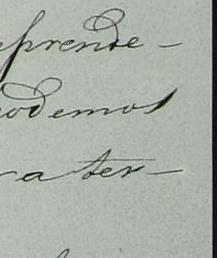 prende-
podemos
ra ter-